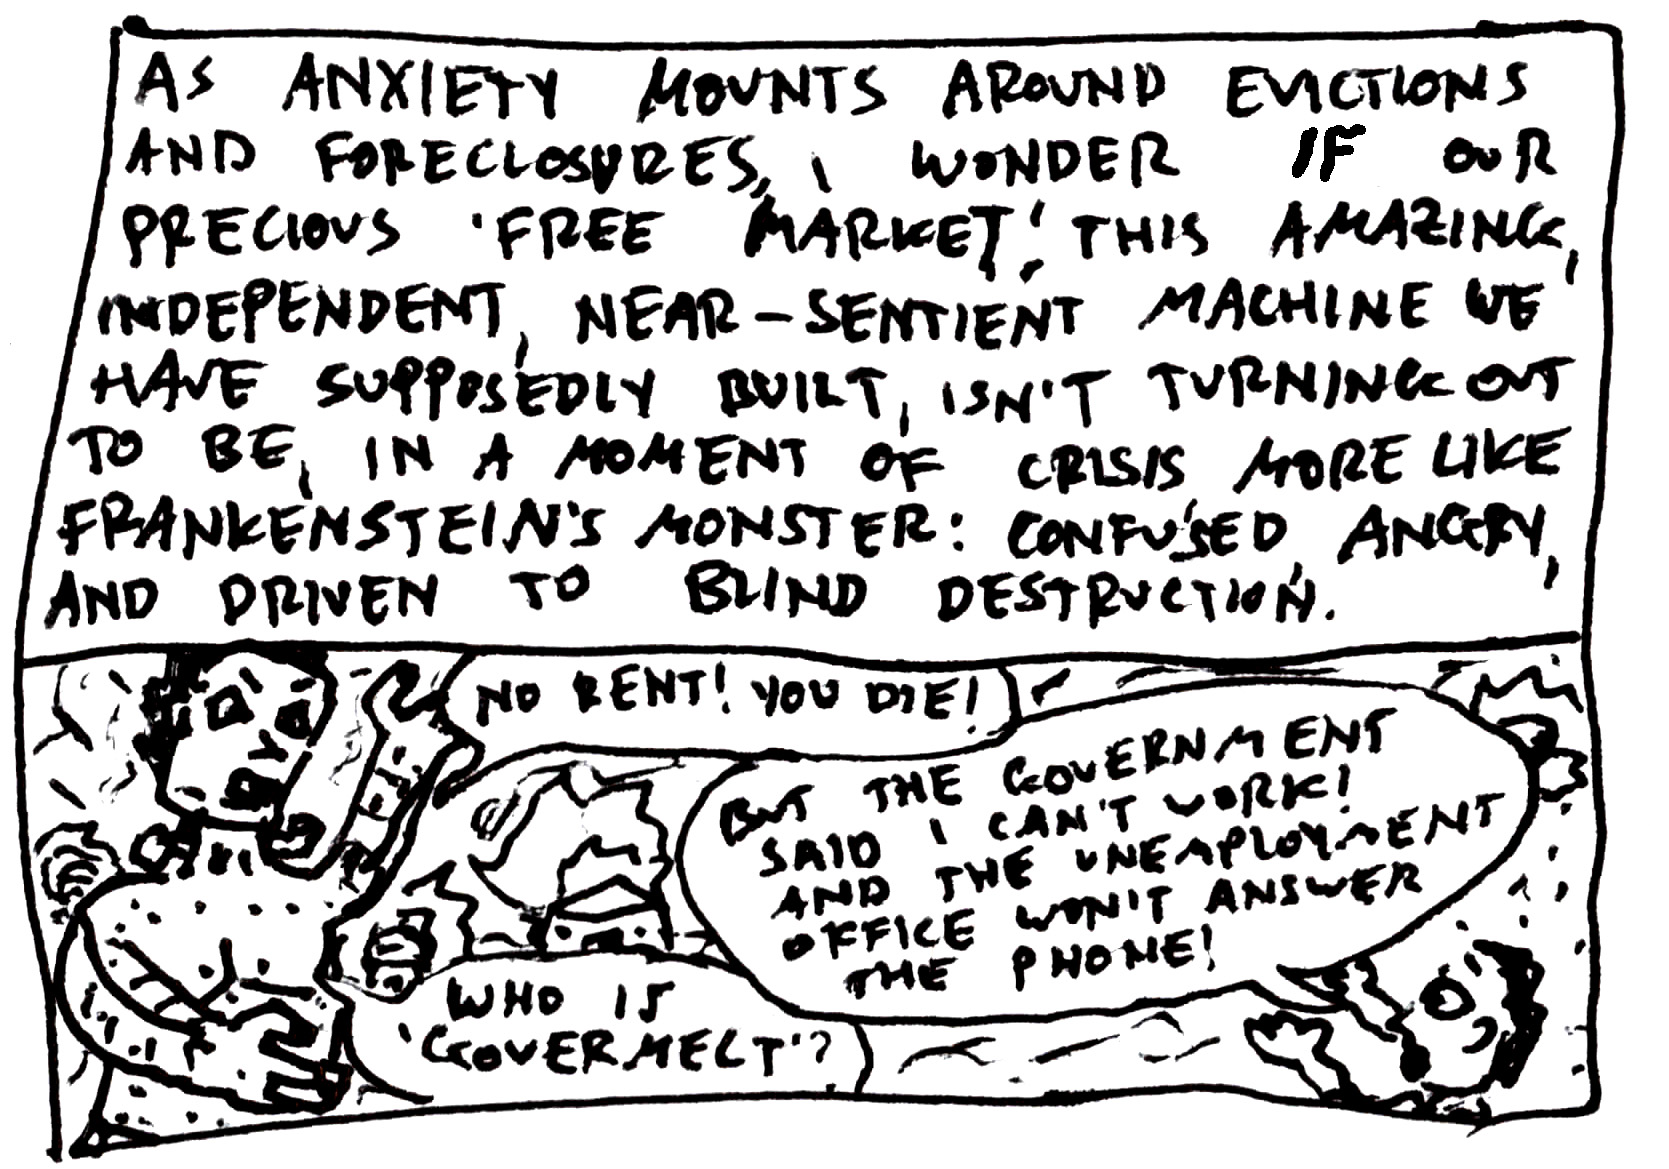 AS ANXIETY MOUNTS AROUND EVICTIONS
AND FORECLOSURES, I WONDER IF OUR
PRECIOUS 'FREE MARKET', THIS AMAZING,
INDEPENDENT, NEAR-SENTIENT MACHINE WE
HAVE SUPPOSEDLY BUILT, ISN'T TURNING OUT
TO BE, IN A MOMENT OF CRISIS MORE LIKE
FRANKENSTEIN'S MONSTER: CONFUSED, ANGRY,
AND DRIVEN TO BLIND DESTRUCTION.
NO RENT! YOU DIE!
BUT THE GOVERNMENT
SAID I CAN'T WORK!
AND THE UNEMPLOYMENT
OFFICE WON'T ANSWER
THE PHONE!
WHO IS
'GOVERMELT'?